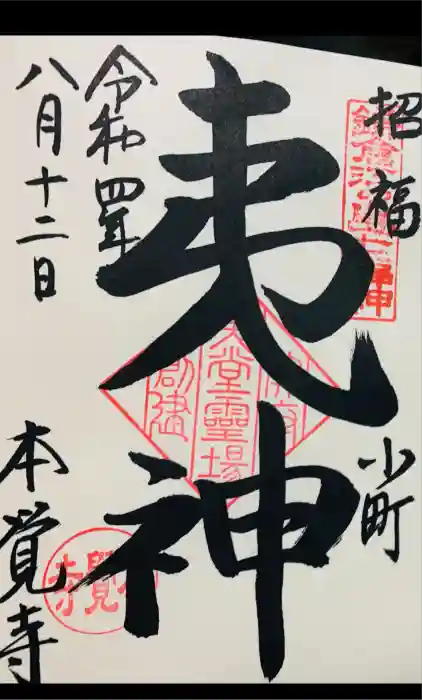 招福
小町
鎌倉江ノ島七福神
夷神
夷堂靈場
創建
令和四年
八月十二日
本覺寺